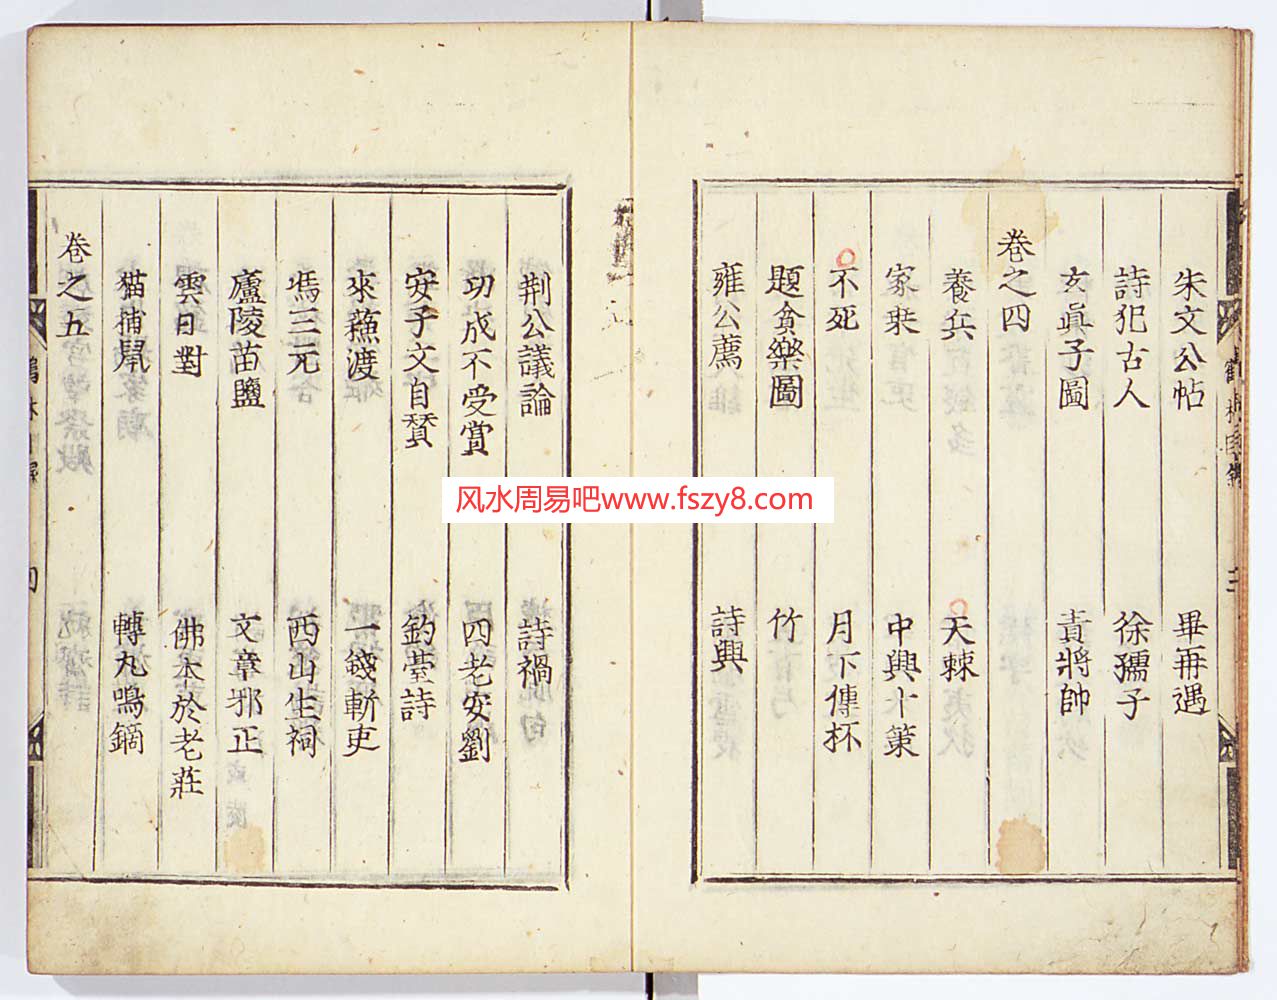 朱文公帖 畢再遇
詩犯古人 徐孺子
玄眞子圖 責將帥
卷之四
養兵 天棘
家乘 中興十策
不死 月下傳杯
題貪樂圖 竹
雍公薦 詩興
荆公議論 詩禍
功成不受賞 四老安劉
安子文自賛 釣臺詩
來蘓渡 一錢斬吏
馮三元 西山生祠
廬陵苗鹽 文章邪正
雲日對 佛本於老莊
猫捕䑕 轉丸鳴鏑
卷之五
风水周易吧www.fszy8.com